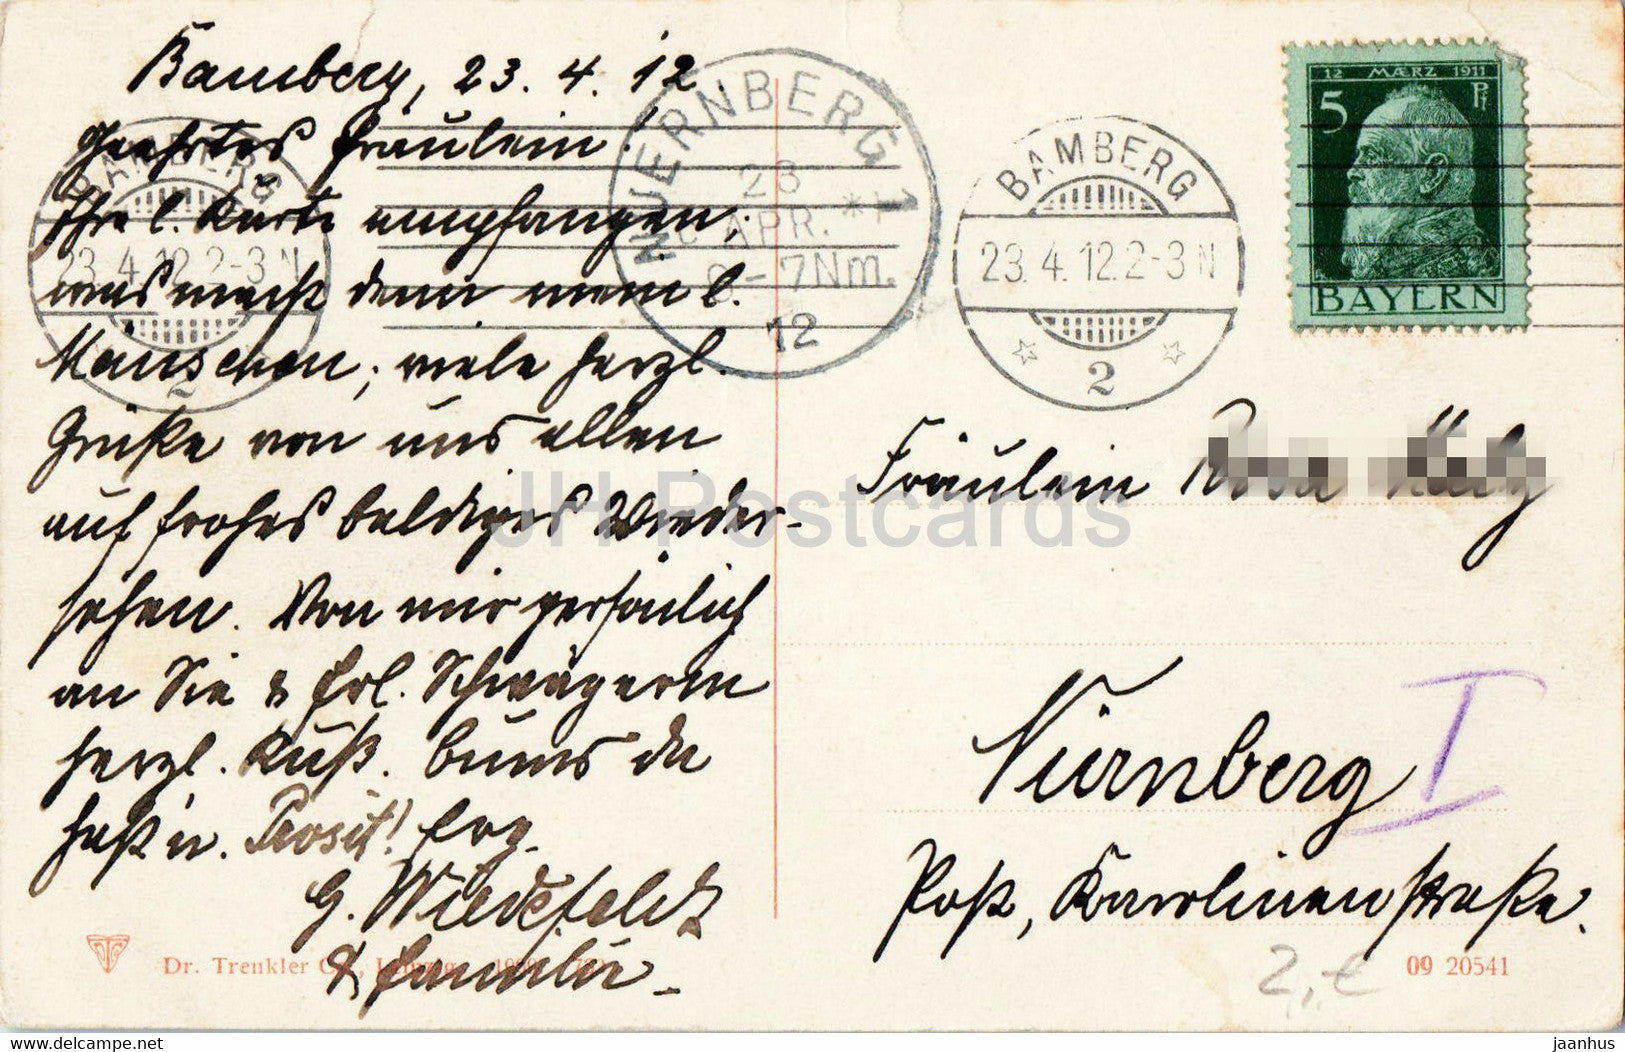 Bamberg, 23.4.12.
Geehrtes Fräulein!
Ihre l. Karte empfangen,
was macht denn mein l.
Mäuschen; viele herzl.
Grüße von uns allen
auf frohes baldiges Wieder-
sehen. Von mir persönlich
an Sie & Frl. Schwägerin
herzl. Kuß. bums da
hast'n. Prosit! Erg.
G. Wiedefeldt
& Familie
BAMBERG
23.4.12.2-3N
2
NUERNBERG 1
23
APR.
6-7Nm.
12
BAMBERG
23.4.12.2-3N
2
12 MÆRZ 1911
5 Pf
BAYERN
Fräulein
Nürnberg I
Post, Karolinenstraße.
JH Postcards
Dr. Trenkler Co., Leipzig
09 20541
2,- €
delcampe.net
jaanhus